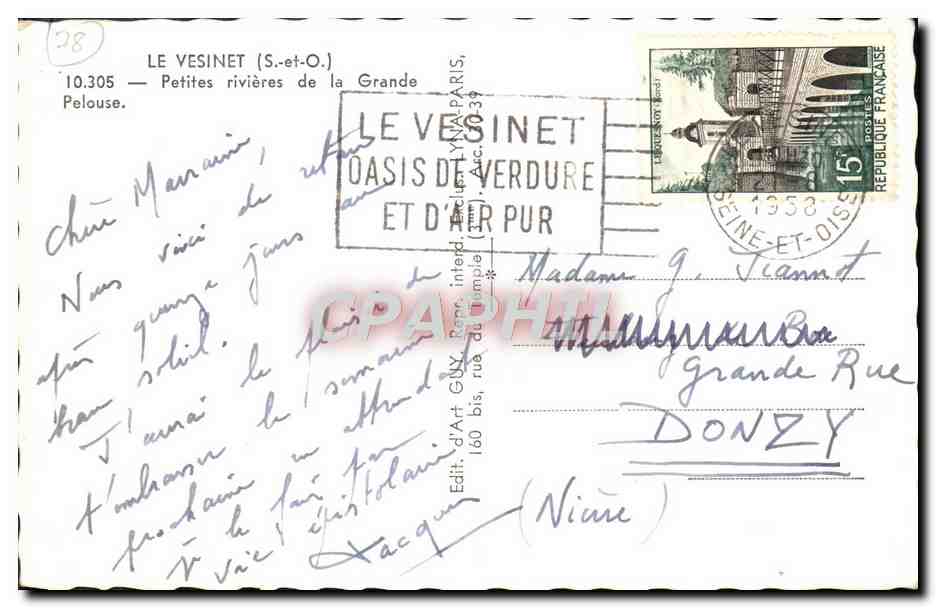 78
LE VESINET (S.-et-O.)
10.305 — Petites rivières de la Grande
Pelouse.
Chère Marraine,
Nous voici de retour
après quinze jours au
beau soleil.
J'aurai le plaisir de
t'embrasser la semaine
prochaine en attendant
je le fais par
voie épistolaire
Jacques
Edit. d'Art GUY, Repr. interd. Exclus. LYNA-PARIS,
160 bis, rue du Temple (3me). Arc. 70-39
LE VESINET
OASIS DE VERDURE
ET D'AIR PUR
LE QUESNOY (Nord)
15F
POSTES
REPUBLIQUE FRANÇAISE
1958
SEINE-ET-OISE
Madame G. Jeannot
Grande Rue
DONZY
(Nièvre)
CPAPHIL